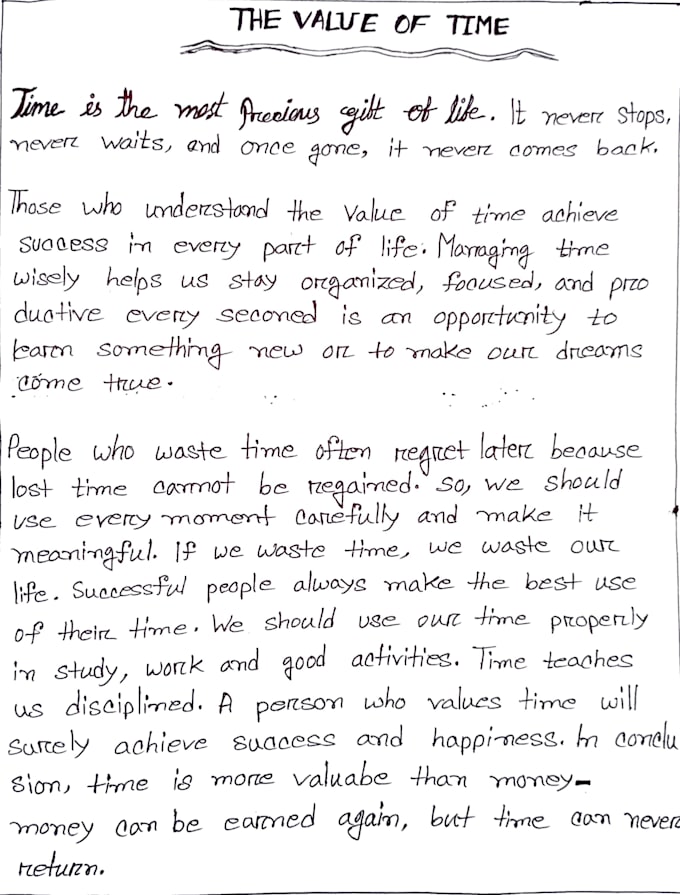 THE VALUE OF TIME
Time is the most Precious gift of life. It never stops,
never waits, and once gone, it never comes back.
Those who understand the value of time achieve
success in every part of life. Managing time
wisely helps us stay organized, focused, and pro
ductive every seconed is an opportunity to
learn something new or to make our dreams
come true.
People who waste time often regret later because
lost time cannot be regained. So, we should
use every moment carefully and make it
meaningful. If we waste time, we waste our
life. Successful people always make the best use
of their time. We should use our time properly
in study, work and good activities. Time teaches
us disciplined. A person who values time will
surely achieve success and happiness. In conclu
sion, time is more valuabe than money-
money can be earned again, but time can never
return.